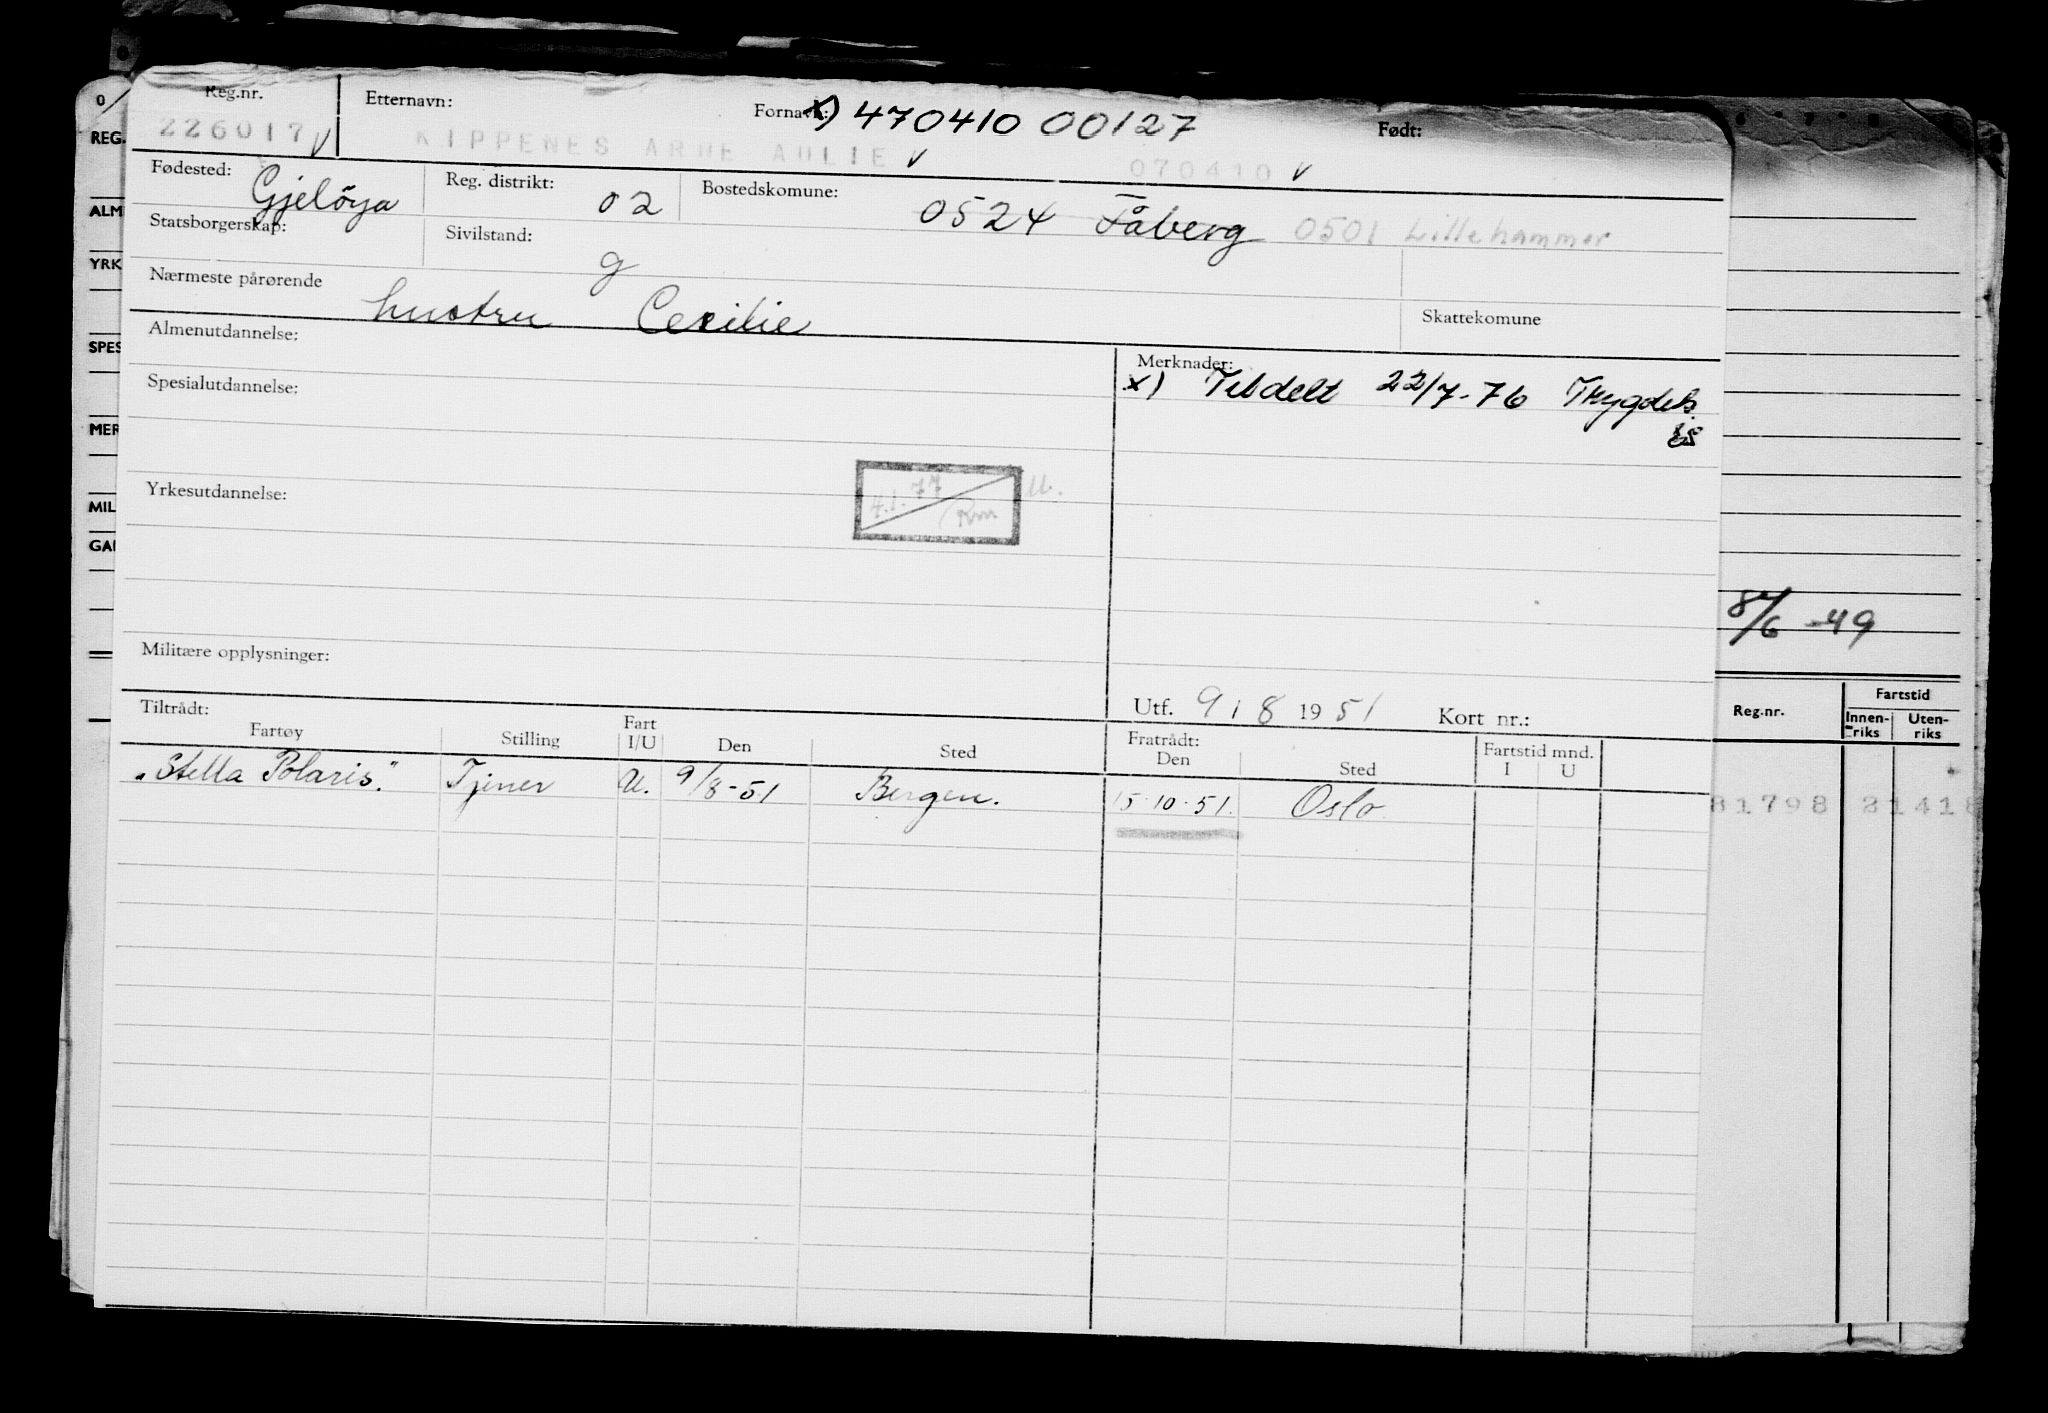 Reg.nr. Etternavn: Fornavn: x) 470410 00127 Født:
226017 v KIPPENES ARNE AULIE v 070410 v
Fødested: Gjelöya Reg. distrikt: 02 Bostedskomune: 0524 Fåberg 0501 Lillehammer
Statsborgerskap: Sivilstand: g
Nærmeste pårørende hustru Cecilie Skattekomune
Almenutdannelse: Merknader:
x) Tildelt 22/7-76 Trygdeb.
Spesialutdannelse:
Yrkesutdannelse: 4.1.77
Militære opplysninger:
Utf. 9/8 1951 Kort nr.:
Tiltrådt: Fratrådt:
Fartøy Stilling Fart I/U Den Sted Den Sted Fartstid mnd. I U
"Stella Polaris." Tjener U. 9/8-51 Bergen. 15.10.51. Oslo
0
REG.
ALM
YRK
SPES
MER
MIL
GAI
8/6-49
Reg.nr. Fartstid
Innen-riks Uten-riks
81798 21418